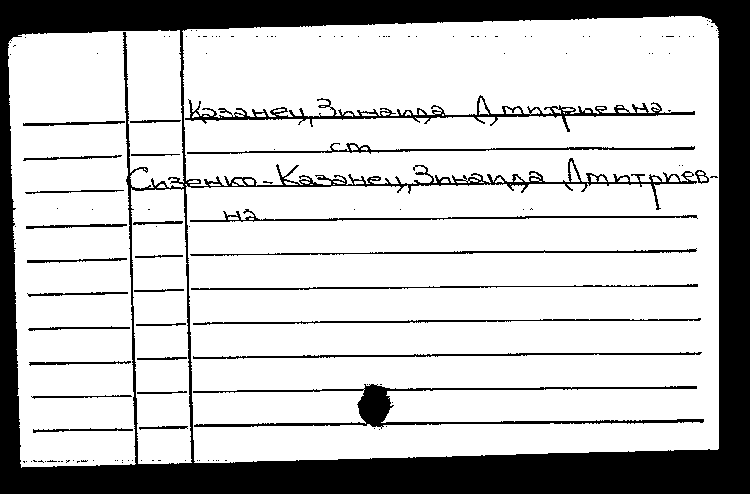 Казанец, Зинаида Дмитриевна.
ст
Сизенко-Казанец, Зинаида Дмитриев-
на